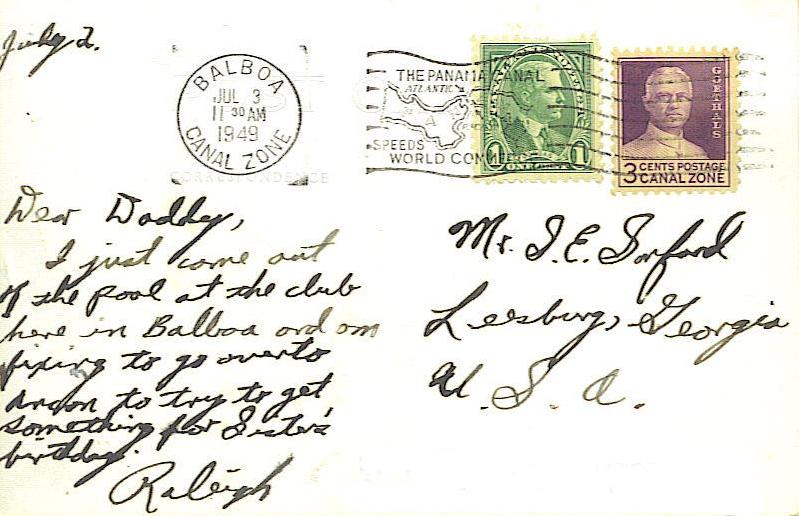 July 2.
BALBOA
JUL 3
11 30 AM
1949
CANAL ZONE
THE PANAMA CANAL
ATLANTIC
SPEEDS
WORLD COMME
1 1
GOETHALS
3 CENTS POSTAGE
CANAL ZONE
CORRESPONDENCE
Dear Daddy,
I just come out
of the pool at the club
here in Balboa and am
fixing to go over to
Ancon to try to get
something for Sister's
birthday.
Raleigh
Mr. J. E.
Leesburg, Georgia
U. S. A.